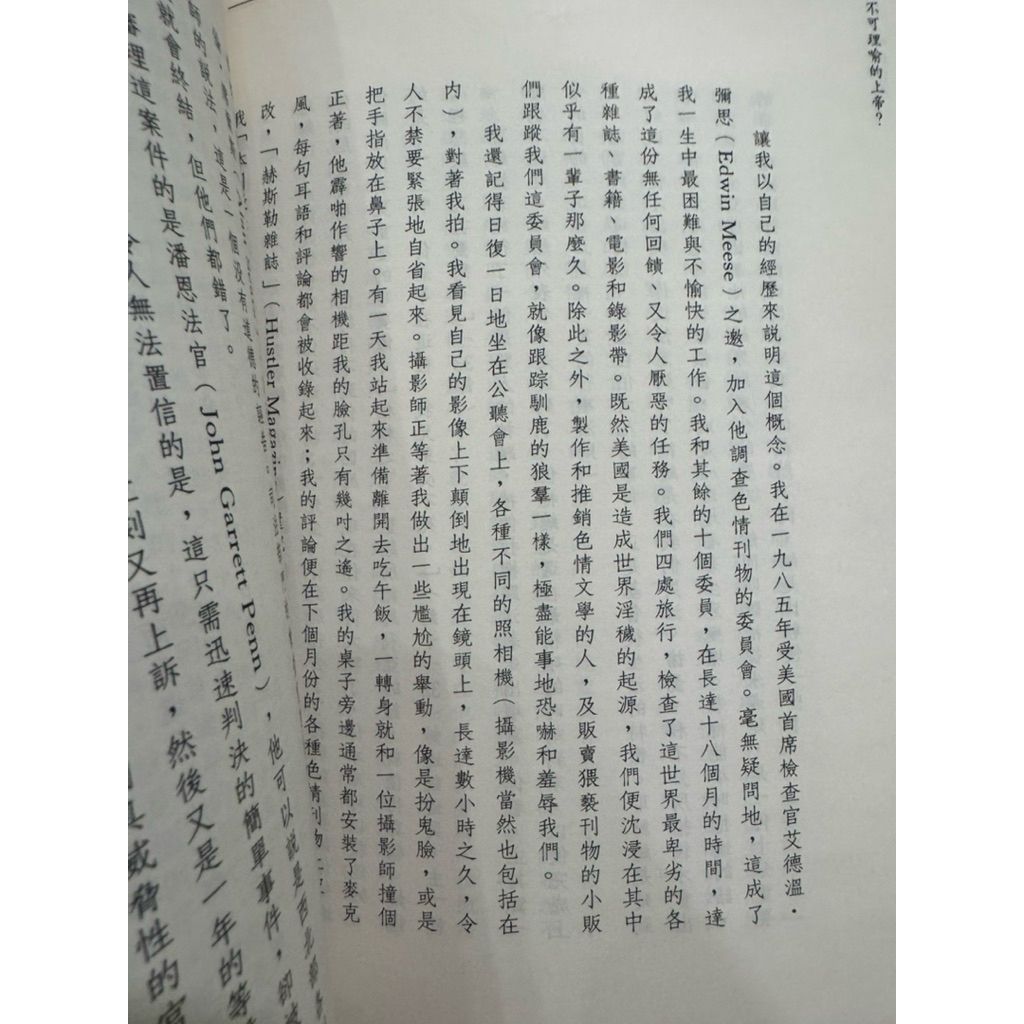 不可理喻的上帝？
讓我以自己的經歷來說明這個概念。我在一九八五年受美國首席檢查官艾德溫．
彌思（Edwin Meese）之邀，加入他調查色情刊物的委員會。毫無疑問地，這成了
我一生中最困難與不愉快的工作。我和其餘的十個委員，在長達十八個月的時間，達
成了這份無任何回饋、又令人厭惡的任務。我們四處旅行，檢查了這世界最卑劣的各
種雜誌、書籍、電影和錄影帶。既然美國是造成世界淫穢的起源，我們便沈浸在其中
似乎有一輩子那麼久。除此之外，製作和推銷色情文學的人，及販賣猥褻刊物的小販
們跟蹤我們這委員會，就像跟踪馴鹿的狼羣一樣，極盡能事地恐嚇和羞辱我們。
我還記得日復一日地坐在公聽會上，各種不同的照相機（攝影機當然也包括在
內），對著我拍。我看見自己的影像上下顛倒地出現在鏡頭上，長達數小時之久，令
人不禁要緊張地自省起來。攝影師正等著我做出一些尷尬的舉動，像是扮鬼臉，或是
把手指放在鼻子上。有一天我站起來準備離開去吃午飯，一轉身就和一位攝影師撞個
正著，他霹啪作響的相機距我的臉孔只有幾吋之遙。我的桌子旁邊通常都安裝了麥克
風，每句耳語和評論都會被收錄起來；我的評論便在下個月份的各種色情刊物上
改，「赫斯勒雜誌」（Hustler Magazin
這是一個沒有
師的說法，
就會終結，但他們都錯了。
理這案件的是潘恩法官（John Garrett Penn），他可以說是西北部
令人無法置信的是，這只需迅速判決的簡單事件，卻
則又再上訴，然後又是一年的等
具威脅性的